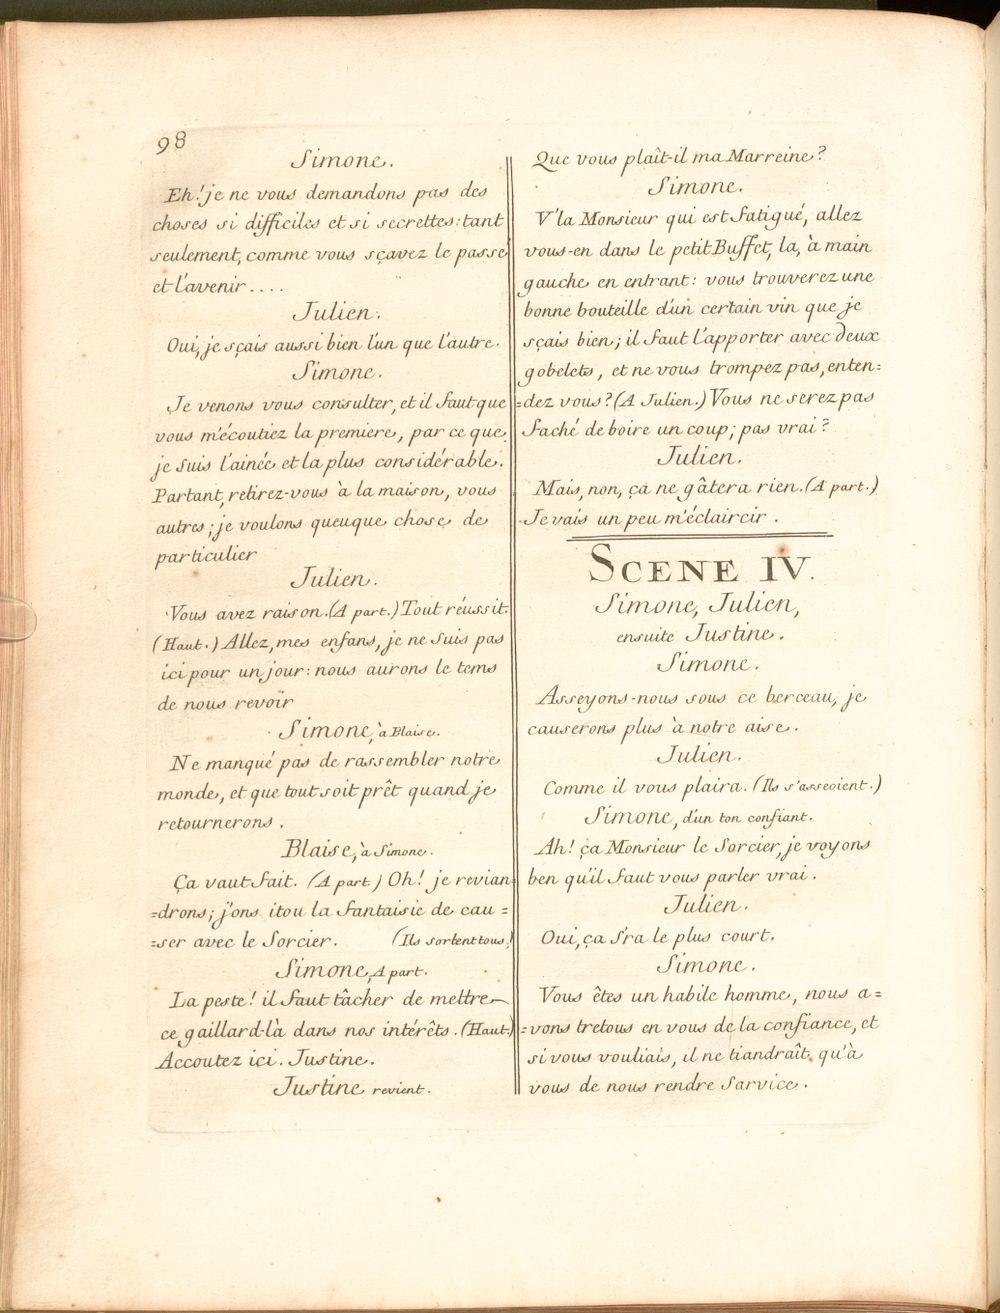 98
Simone.
Eh! je ne vous demandons pas des
choses si difficiles et si secrettes: tant
seulement, comme vous sçavez le passé
et l'avenir....
Julien.
Oui, je sçais aussi bien l'un que l'autre.
Simone.
Je venons vous consulter, et il faut que
vous m'écoutiez la premiere, par ce que
je suis l'ainée et la plus considérable.
Partant, retirez-vous à la maison, vous
autres; je voulons queuque chose de
particulier
Julien.
Vous avez raison. (A part.) Tout réussit.
(Haut.) Allez, mes enfans, je ne suis pas
ici pour un jour: nous aurons le tems
de nous revoir
Simone, à Blaise.
Ne manqué pas de rassembler notre
monde, et que tout soit prêt quand je
retournerons.
Blaise, à Simone.
Ça vaut fait. (A part) Oh! je revian=
=drons; j'ons itou la fantaisie de cau=
=ser avec le Sorcier. (Ils sortent tous.)
Simone, A part.
La peste! il faut tâcher de mettre
ce gaillard-là dans nos intérêts. (Haut.)
Accoutez ici. Justine.
Justine revient.
Que vous plaît-il ma Marreine?
Simone.
V'la Monsieur qui est fatigué, allez
vous-en dans le petit Buffet, la, à main
gauche en entrant: vous trouverez une
bonne bouteille d'un certain vin que je
sçais bien; il faut l'apporter avec deux
gobelets, et ne vous trompez pas, enten=
=dez vous? (A Julien.) Vous ne serez pas
faché de boire un coup; pas vrai?
Julien.
Mais, non, ça ne gâtera rien. (A part.)
Je vais un peu m'éclaircir.
SCENE IV.
Simone, Julien,
ensuite Justine.
Simone.
Asseyons-nous sous ce berceau, je
causerons plus à notre aise.
Julien.
Comme il vous plaira. (Ils s'asseoient.)
Simone, d'un ton confiant.
Ah! ça Monsieur le Sorcier, je voyons
ben qu'il faut vous parler vrai.
Julien.
Oui, ça s'ra le plus court.
Simone.
Vous êtes un habile homme, nous a=
=vons tretous en vous de la confiance, et
si vous vouliais, il ne tiandraît qu'à
vous de nous rendre sarvice.